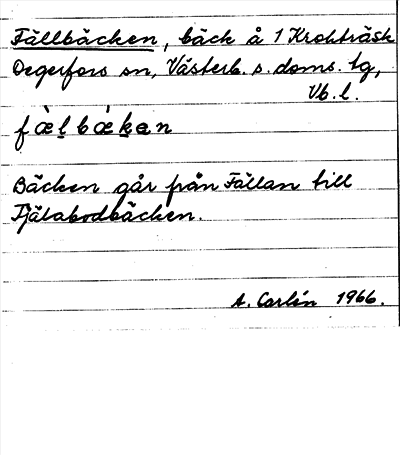 Fällbäcken, bäck å 1 Krokträsk
Degerfors sn, Västerb. s. doms. tg,
Vb. l.
fæ̀l̲bæ̀k̲en
Bäcken går från Fällan till
Fjälabodbäcken.
A. Carlín 1966.